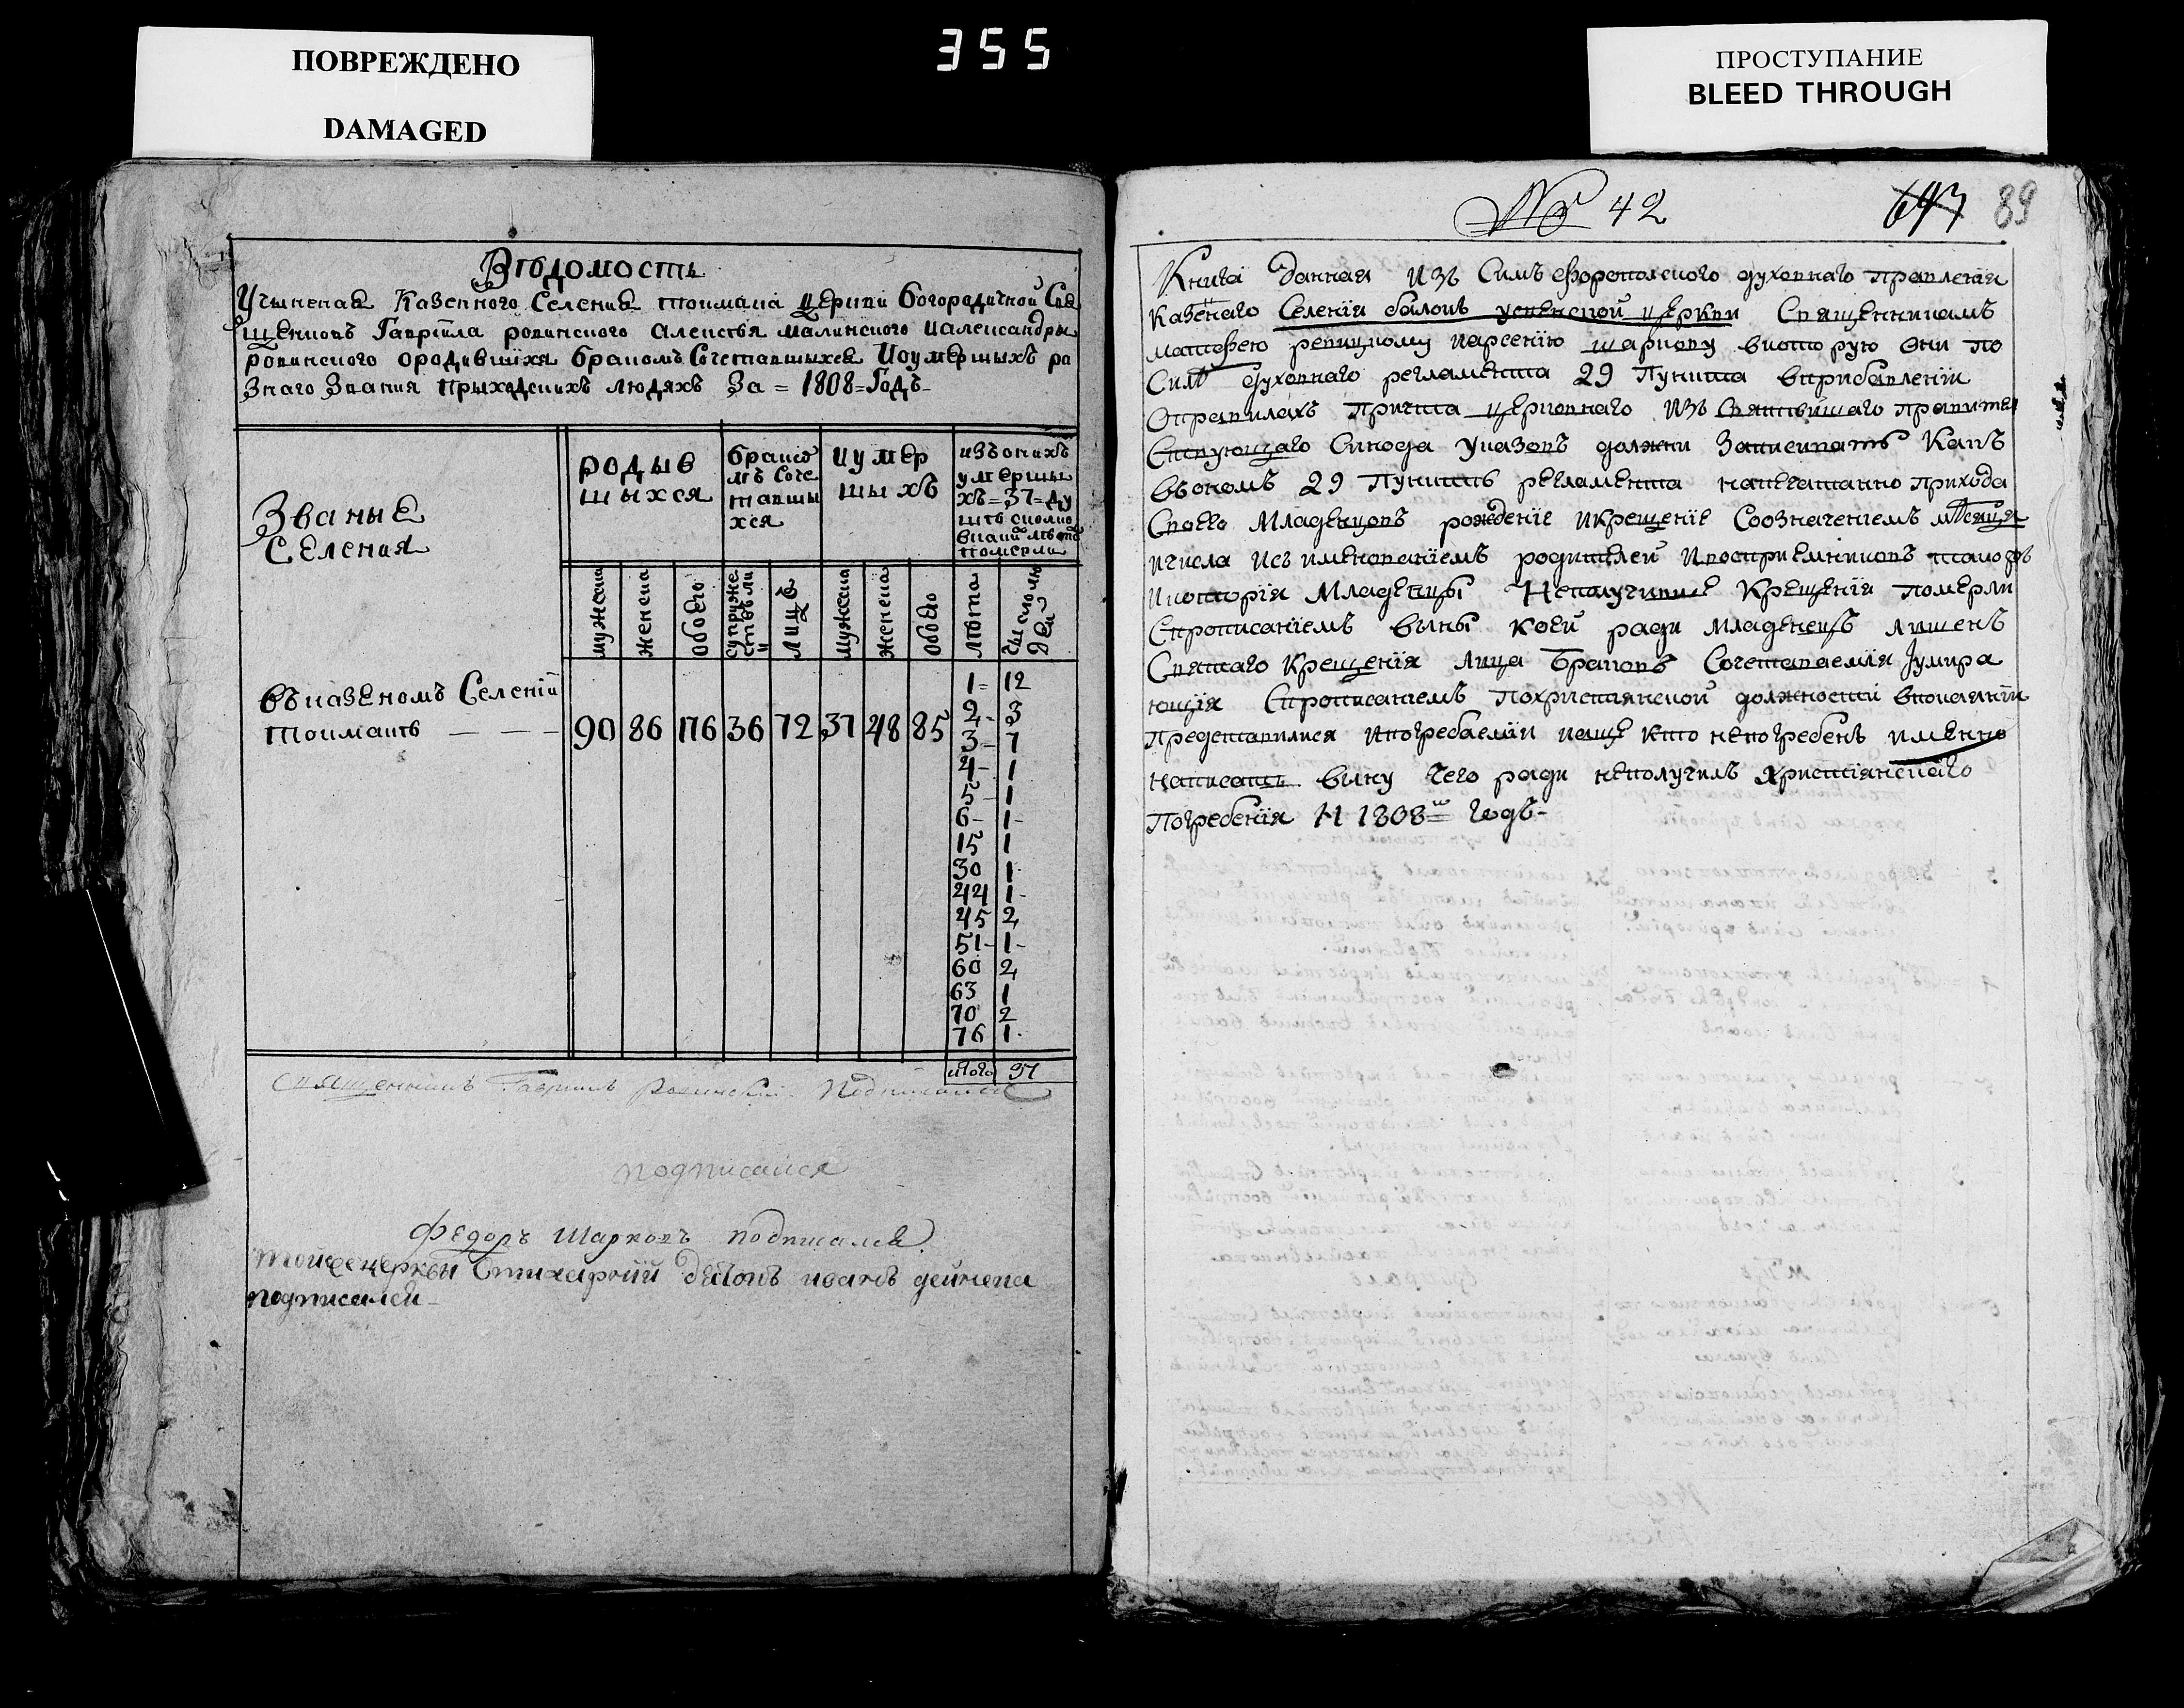 ПОВРЕЖДЕНО
DAMAGED
355
ПРОСТУПАНИЕ
BLEED THROUGH
Вѣдомость
Учыненая Казенного Селения токмака церкви богородичной Свя
щенковъ Гавриила ровинского алексѣя малинского иалександры
ровинского ородившихся бракомъ Сочетавшыхся Иоумершыхъ ра
Знаго Звания прыходскихъ людяхъ За = 1808 = Годъ
Званые
Селения
родыв
шыхся
бракo
мъ Соче
тавшы
хся
иумер
шыхъ
изъ оныхъ
умершы
хъ = 37 = ду
шъ сколко
померли
мужеска
женска
обоего
супруже
ствъ ли
Лицъ
мужеска
женска
обоего
лѣта
въказеномъ Селении
токмакѣ — — —
90 86 176 36 72 37 48 85
1 = 12
2 - 3
3 - 7
4 - 1
5 - 1
6 - 1 -
15 1
30 1
44 1 -
45 2
51 - 1 -
60 2
63 1
70 2
76 1
итого 37
священникъ Гавриилъ Ровинский Подписался
подписался
Федоръ Шарковъ подписался
тойже церкви Стихарний дьяконъ иванъ дейнека
подписалси
№ 42
647 89
Книга данная Изъ Симъферополского духовнаго правления
казенаго Селения балокъ успенской церкви Священникамъ
матфею ревицкому иарсению шаркову вкоторую они по
Силѣ духовнаго регламента 29 Пункта вприбавлении
Оправилахъ причта церковнаго Изъ Святѣйшаго правител
Ствующаго Синода Указовъ должни Записивать Какъ
въономъ 29 Пунктѣ регламента напечатанно прихода
Своего Младенцовъ рождение икрещение Соозначениемъ мѣсяца
ичисла исъ именованиемъ родителей Ивосприемниковъ такожъ
Икотория Младенцы Неполучивше Крещения померли
Спрописаниемъ вины коей ради младенецъ лишенъ
Святаго Крещения лица браковъ Сочетаваемия Iумира
ющия Спрописаниемъ Похристиянской должности впокаянии
Представилися Ипогребаемии иеще кто непогребенъ именно
написать вину Чего ради неполучилъ Християнскаго
Погребения Н 1808 Годъ -